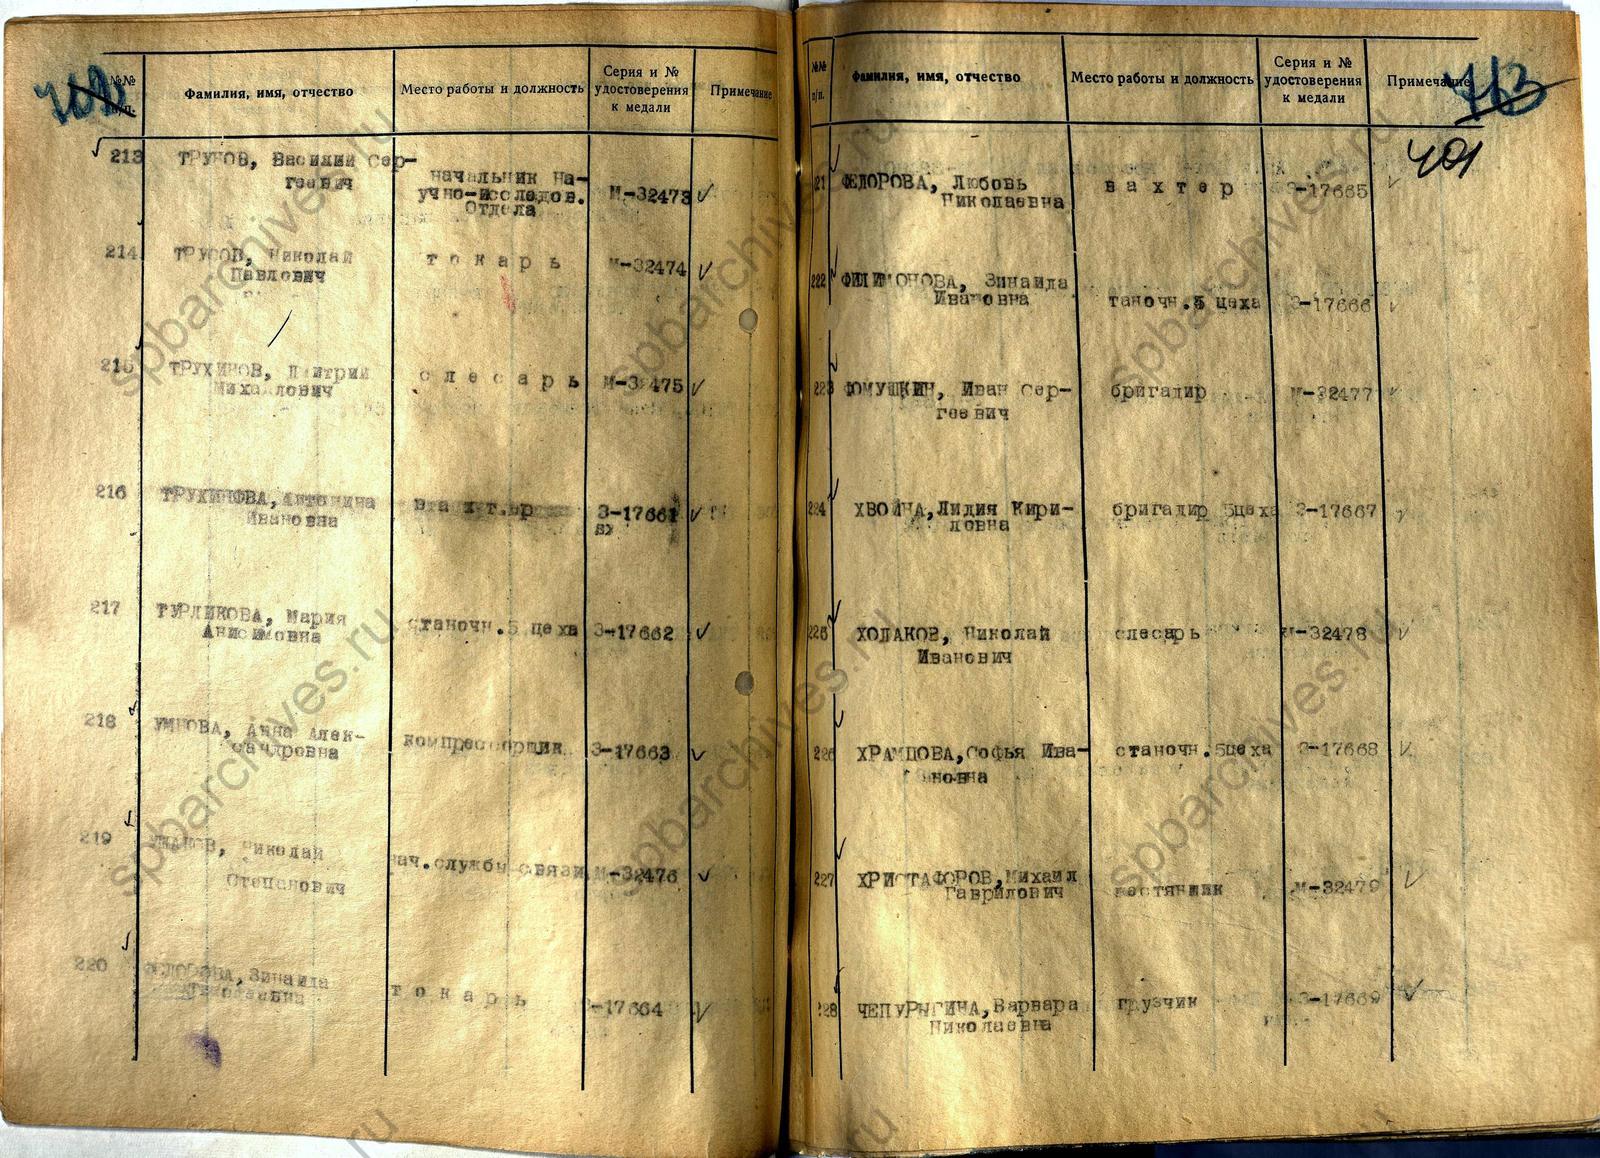 №№
п/п.
Фамилия, имя, отчество
Место работы и должность
Серия и №
удостоверения
к медали
Примечание
213
ТРУНОВ, Василий Сер-
геевич
начальник на-
учно-исследов.
Отдела
М-32473
214
ТРУСОВ, Николай
Павлович
токарь
М-32474
215
ТРУХИНОВ, Дмитрий
Михайлович
слесарь
М-32475
216
ТРУХИНОВА, Антонина
Ивановна
З-17661
217
ТУРЛИКОВА, Мария
Анисимовна
станочн.5 цеха
З-17662
218
УМНОВА, Анна Алек-
сандровна
компрессорщик
З-17663
219
Николай
Степанович
нач.службы связи
М-32476
220
ФЕДОРОВА, Зинаида
токарь
З-17664
№№
п/п.
Фамилия, имя, отчество
Место работы и должность
Серия и №
удостоверения
к медали
Примечание
713
401
221
ФЕДОРОВА, Любовь
Николаевна
вахтер
З-17665
222
ФИЛИМОНОВА, Зинаида
Ивановна
таночн.5 цеха
З-17666
223
ФОМУШКИН, Иван Сер-
геевич
бригадир
М-32477
224
ХВОЙНА, Лидия Кири-
ловна
бригадир 5цеха
З-17667
225
ХОЛАКОВ, Николай
Иванович
слесарь
М-32478
226
ХРАМЦОВА, Софья Ива-
новна
станочн.5цеха
З-17668
227
ХРИСТАФОРОВ, Михаил
Гаврилович
жестянщик
М-32479
228
ЧЕПУРЫГИНА, Варвара
Николаевна
грузчик
З-17669
spbarchives.ru